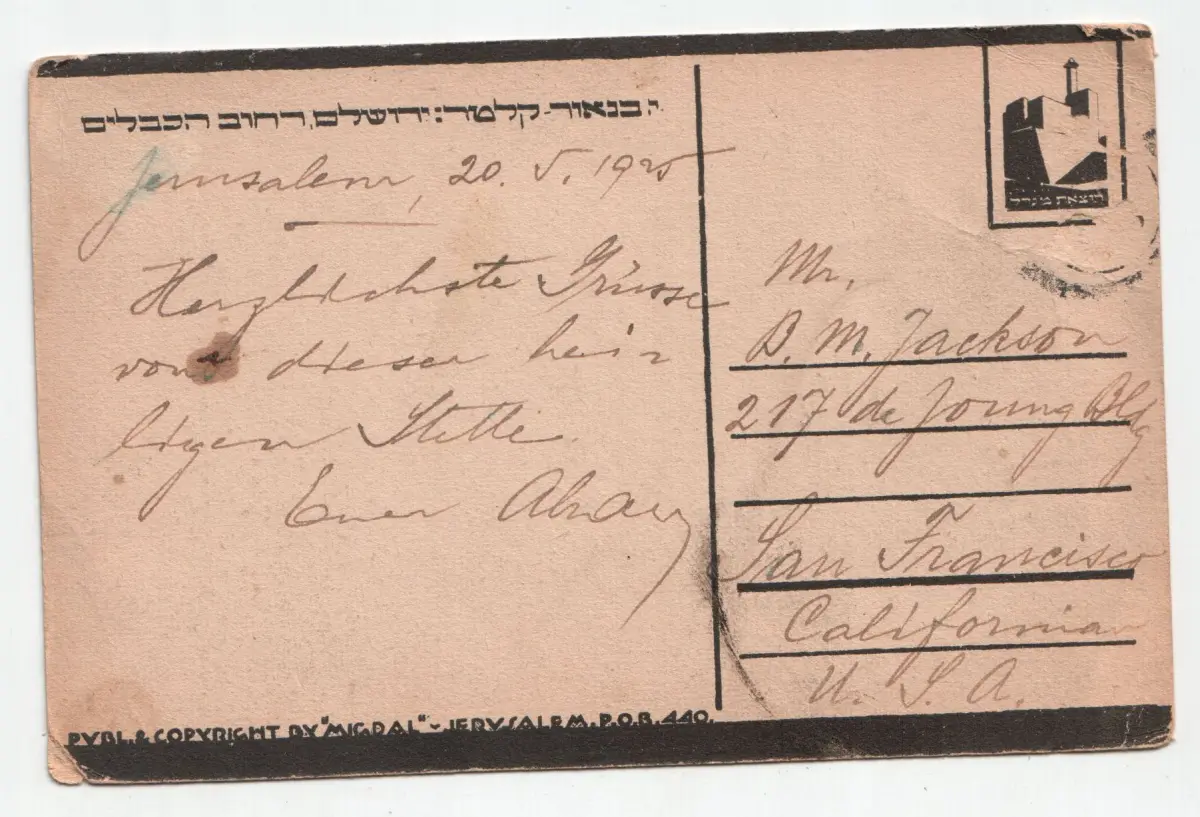 י. בנאור-קלטר: ירושלם, רחוב הכבלים
Jerusalem, 20. V. 1925
Herzlichste Grüsse
von dieser hei-
ligen Stelle.
Euer
הוצאת מגדל
Mr.
B. M. Jackson
217 de Joung Bldg
San Francisco
California
U. S. A.
PVBL. & COPYRIGHT BY "MIGDAL" - JERVSALEM. P.O.B. 440.